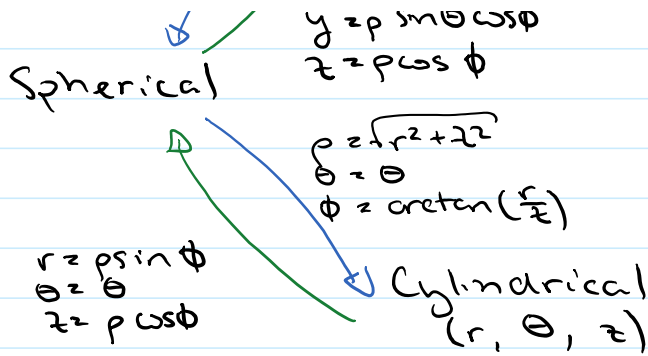 y = ρ sinθ cosϕ
z = ρ cos ϕ
Spherical
ρ = √r² + z²
θ = θ
ϕ = arctan(r/z)
r = ρ sin ϕ
θ = θ
z = ρ cosϕ
Cylindrical
(r, θ, z)